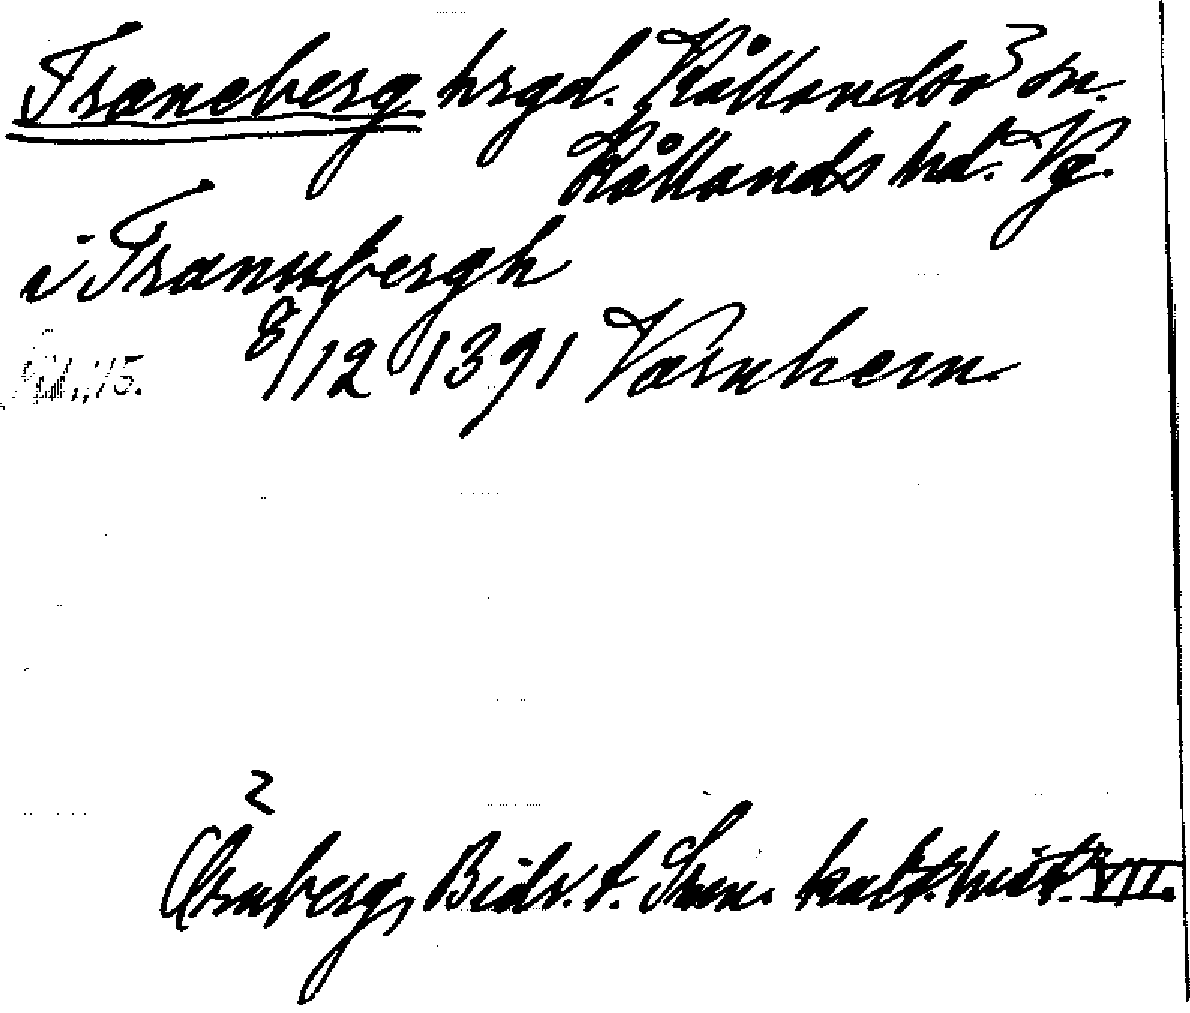 Traneberg hrgd. Kållandsö sn.
Kållands hd. Vg.
i Tranubergh
8/12 1391 Varnhem
Örnberg, Bidr. t. Sven. kult. hist. VII.